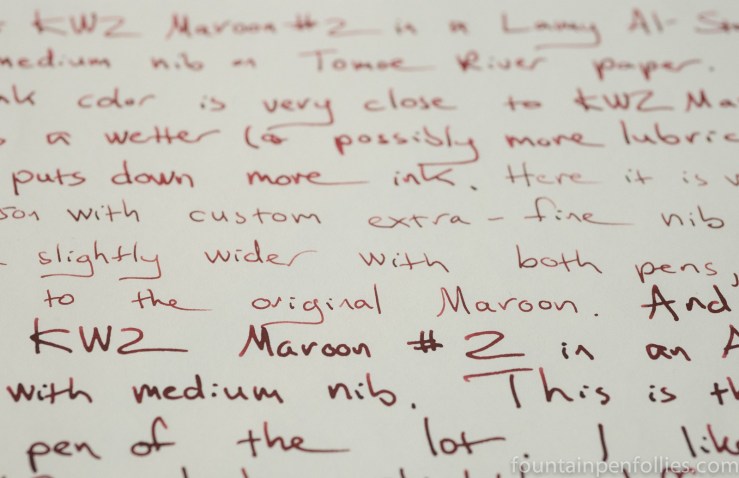 KWZ Maroon #2 in a Lamy Al-
medium nib on Tomoe River paper.
color is very close to KWZ Ma
a wetter (or possibly more lubric
puts down more ink. Here it is
son with custom extra-fine nib
slightly wider with both pens,
to the original Maroon. And
KWZ Maroon #2 in an A
with medium nib. This is th
pen of the lot. I like
fountainpenfollies.com